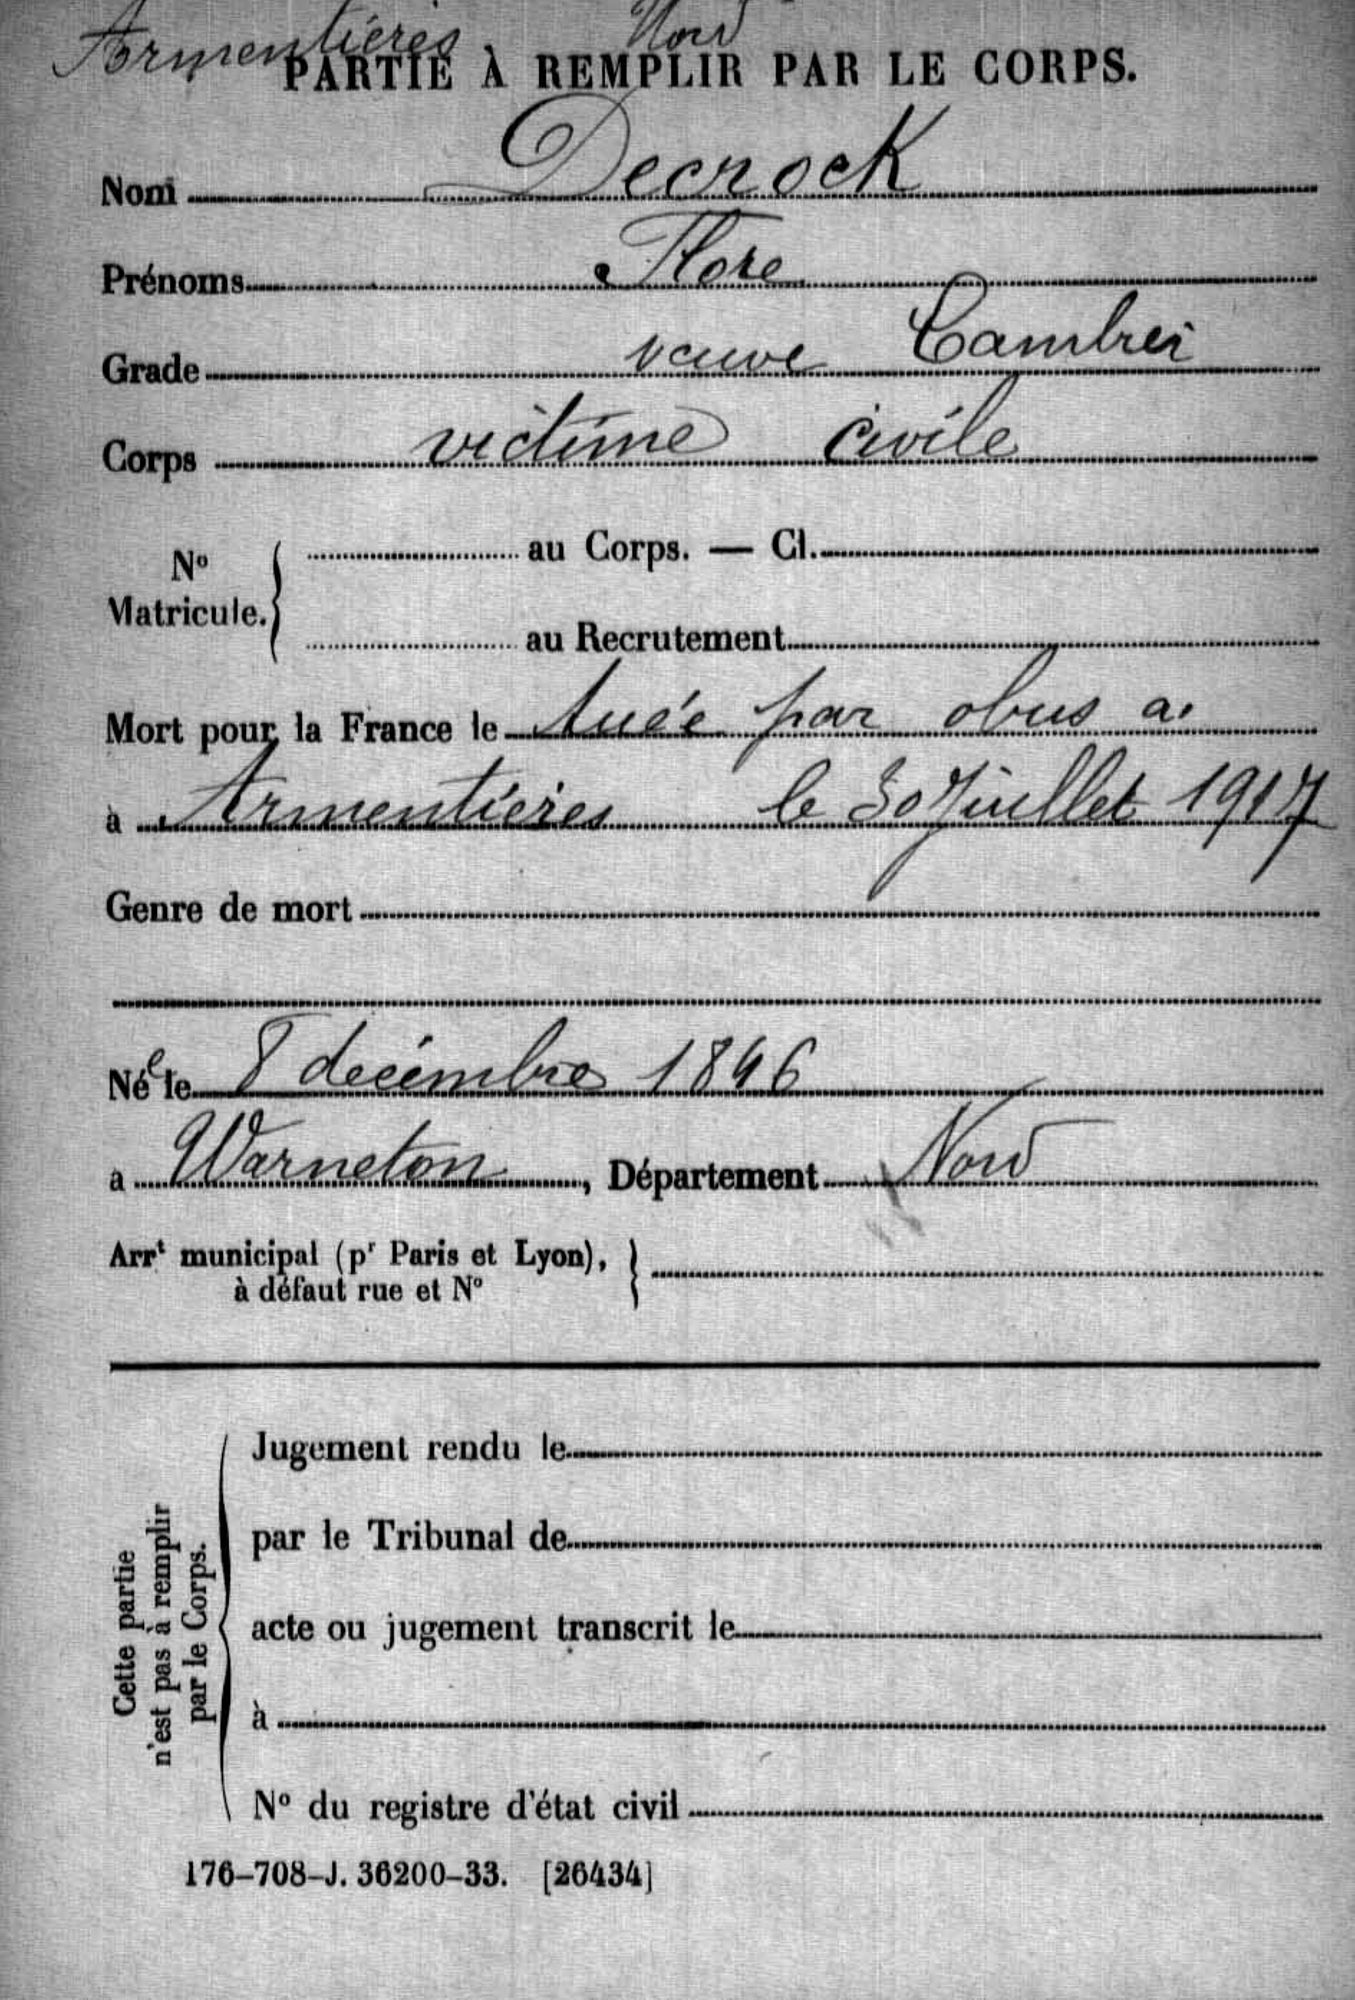 Armentières Nord
PARTIE À REMPLIR PAR LE CORPS.
Nom Decrock
Prénoms Flore
Grade veuve Cambrei
Corps victime civile
Nº
Matricule.
au Corps. — Cl.
au Recrutement
Mort pour la France le tuée par obus a.
à Armentières le 30 Juillet 1917
Genre de mort
Née le 8 decémbre 1846
a Warneton, Département Nord
Arrt municipal (pr Paris et Lyon),
à défaut rue et Nº
Cette partie
n'est pas à remplir
par le Corps.
Jugement rendu le
par le Tribunal de
acte ou jugement transcrit le
à
Nº du registre d'état civil
176-708-J. 36200-33. [26434]